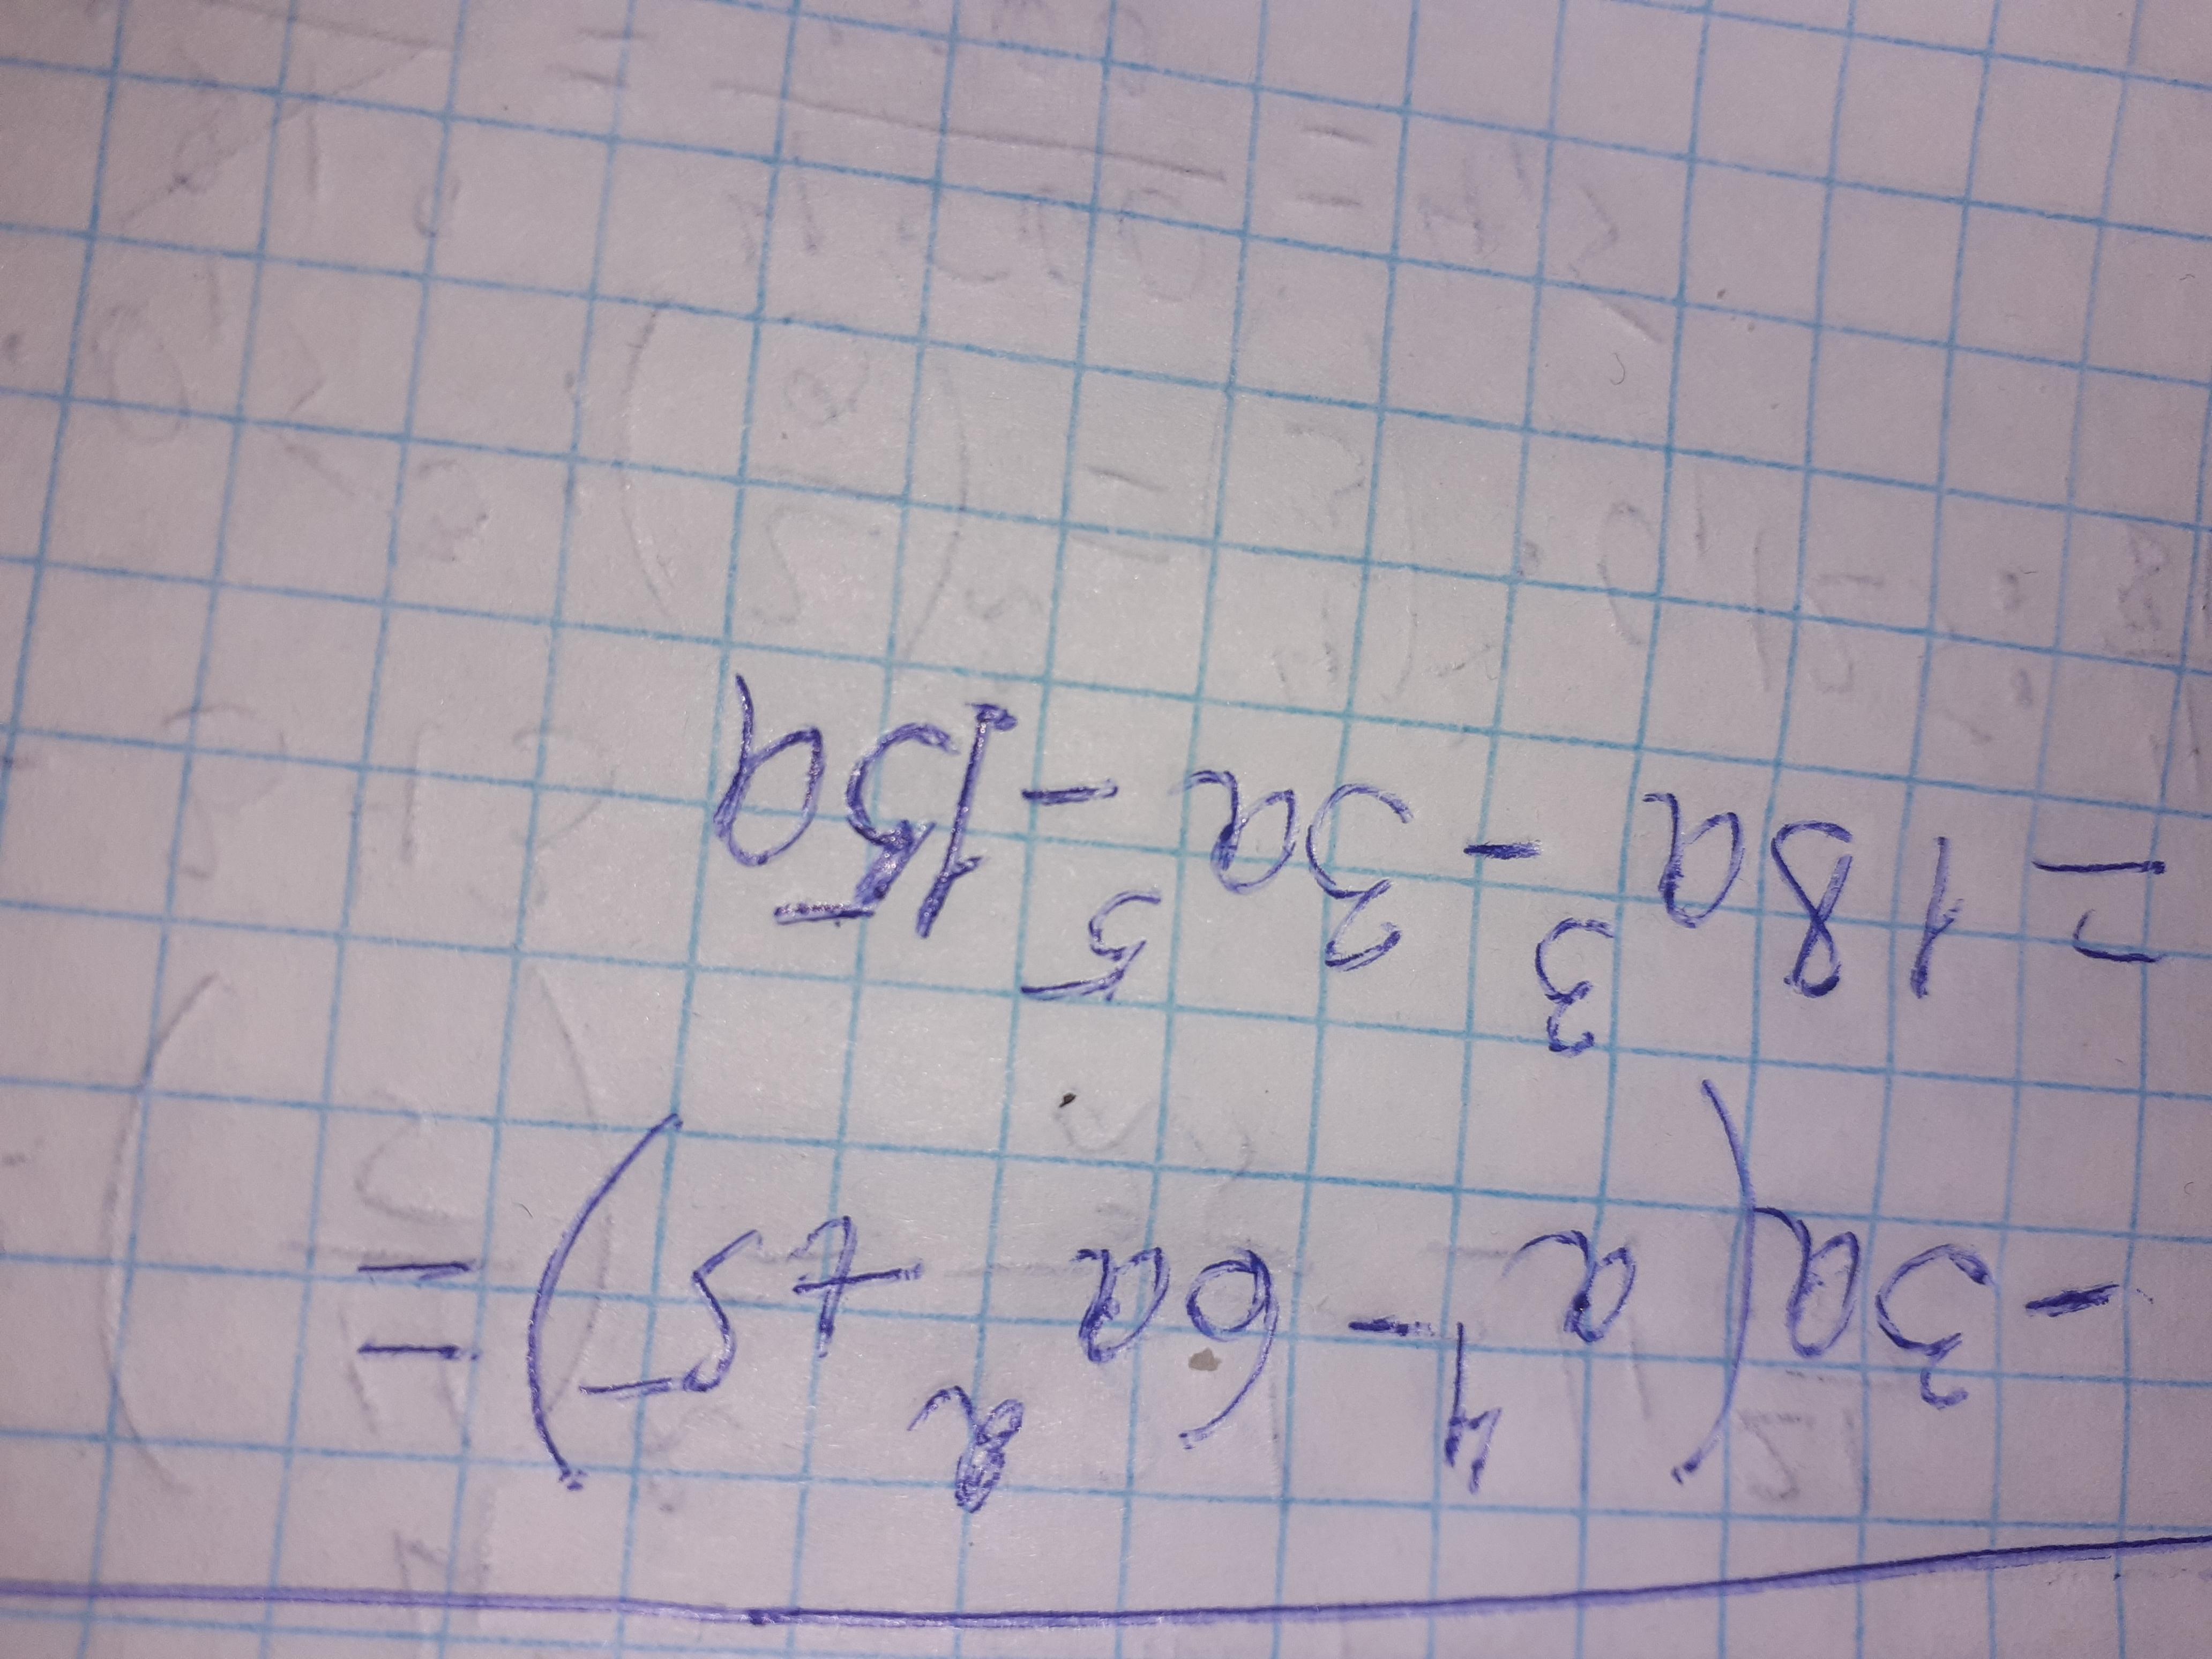 -3a(a⁴-6a²+5)=
=18a³-3a⁵-15a